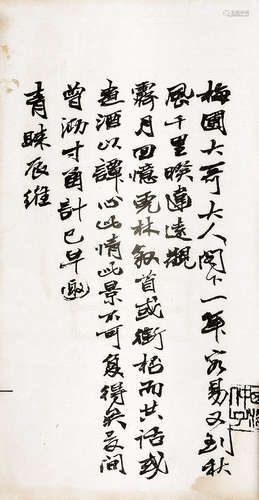 梅國大哥大人閣下一年容易又到秋
風千里暌違遠觀
霽月回憶兔林敘首或衔桮而共话或
煮酒以譚心此情此景不可復得矣夏间
曾泐寸甬計已早邀
青睞辰維